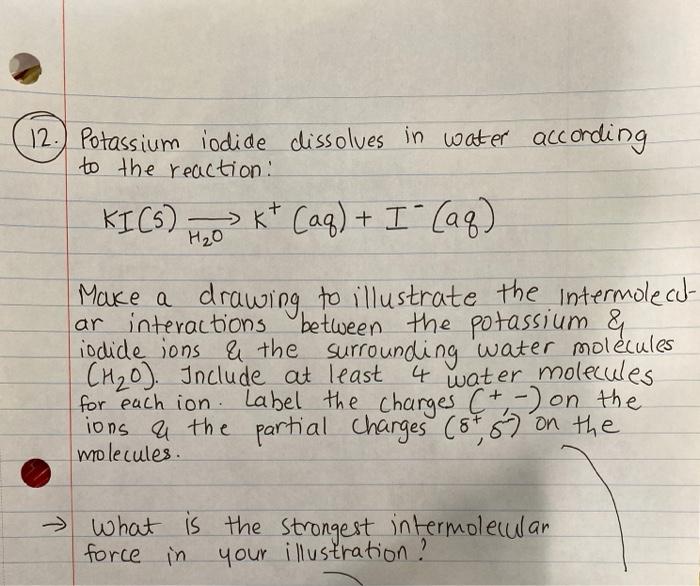 12. Potassium iodide dissolves in water according
to the reaction:
KI(s) → K⁺ (aq) + I⁻ (aq)
H₂O
Make a drawing to illustrate the intermolecul-
ar interactions between the potassium &
iodide ions & the surrounding water molecules
(H₂O). Include at least 4 water molecules
for each ion. Label the charges (+,-) on the
ions & the partial charges (δ⁺, δ⁻) on the
molecules.
→ What is the strongest intermolecular
force in your illustration?